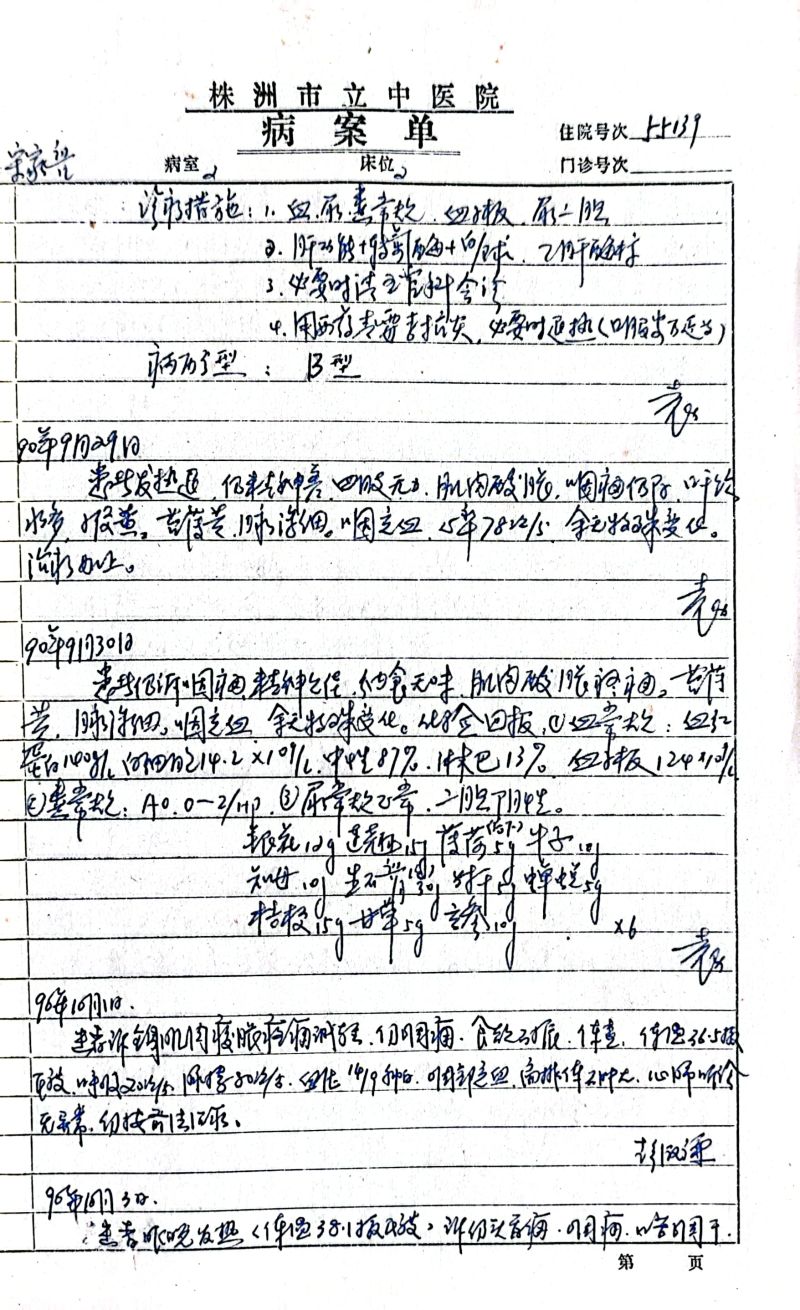 株洲市立中医院
病案单
住院号次 55139
病室 2 床位 2 门诊号次
诊疗措施：1. 血、尿、粪常规、血小板、尿二胆
2. 肝功能+转氨酶+白/球、乙肝
3. 必要时请五官科会诊
4. 用西药 抗炎，必要时退热（
病历分型：B型
袁
90年9月29日
患者发热退，仍精神差，四肢无力，肌肉酸胀，咽痛仍存，口干
多，苔薄黄，脉浮细。咽充血，心率78次/分，余无特殊变化。
治疗如上。
袁
90年9月30日
患者仍诉咽痛，精神欠佳，纳食无味，肌肉酸胀疼痛。苔薄
黄，脉浮细。咽充血，余无特殊变化。化验回报，①血常规：血红
蛋白140g/L，白细胞14.2×10⁹/L，中性87%，淋巴13%，血小板124×10⁹/L
②粪常规：A0.0-2/HP，③尿常规正常，二胆阴性。
银花12g 连翘15g 薄荷(后下)5g 牛子10g
知母10g 生石膏30g 射干5g 蝉蜕5g
桔梗15g 甘草5g 玄参10g ×6
袁
90年10月1日.
患者诉全身肌肉酸胀疼痛减轻，仍咽痛，食欲不振，体查，体温36.5摄
氏度，呼吸20次/分，脉搏80次/分，血压14/9 咽部充血，扁桃体不肿大，心肺听诊
无异常，仍按前法治疗。
彭
90年10月3日.
患者昨晚发热（体温38.1摄氏度）诉仍头昏痛，咽痛，口苦咽干，
第 页